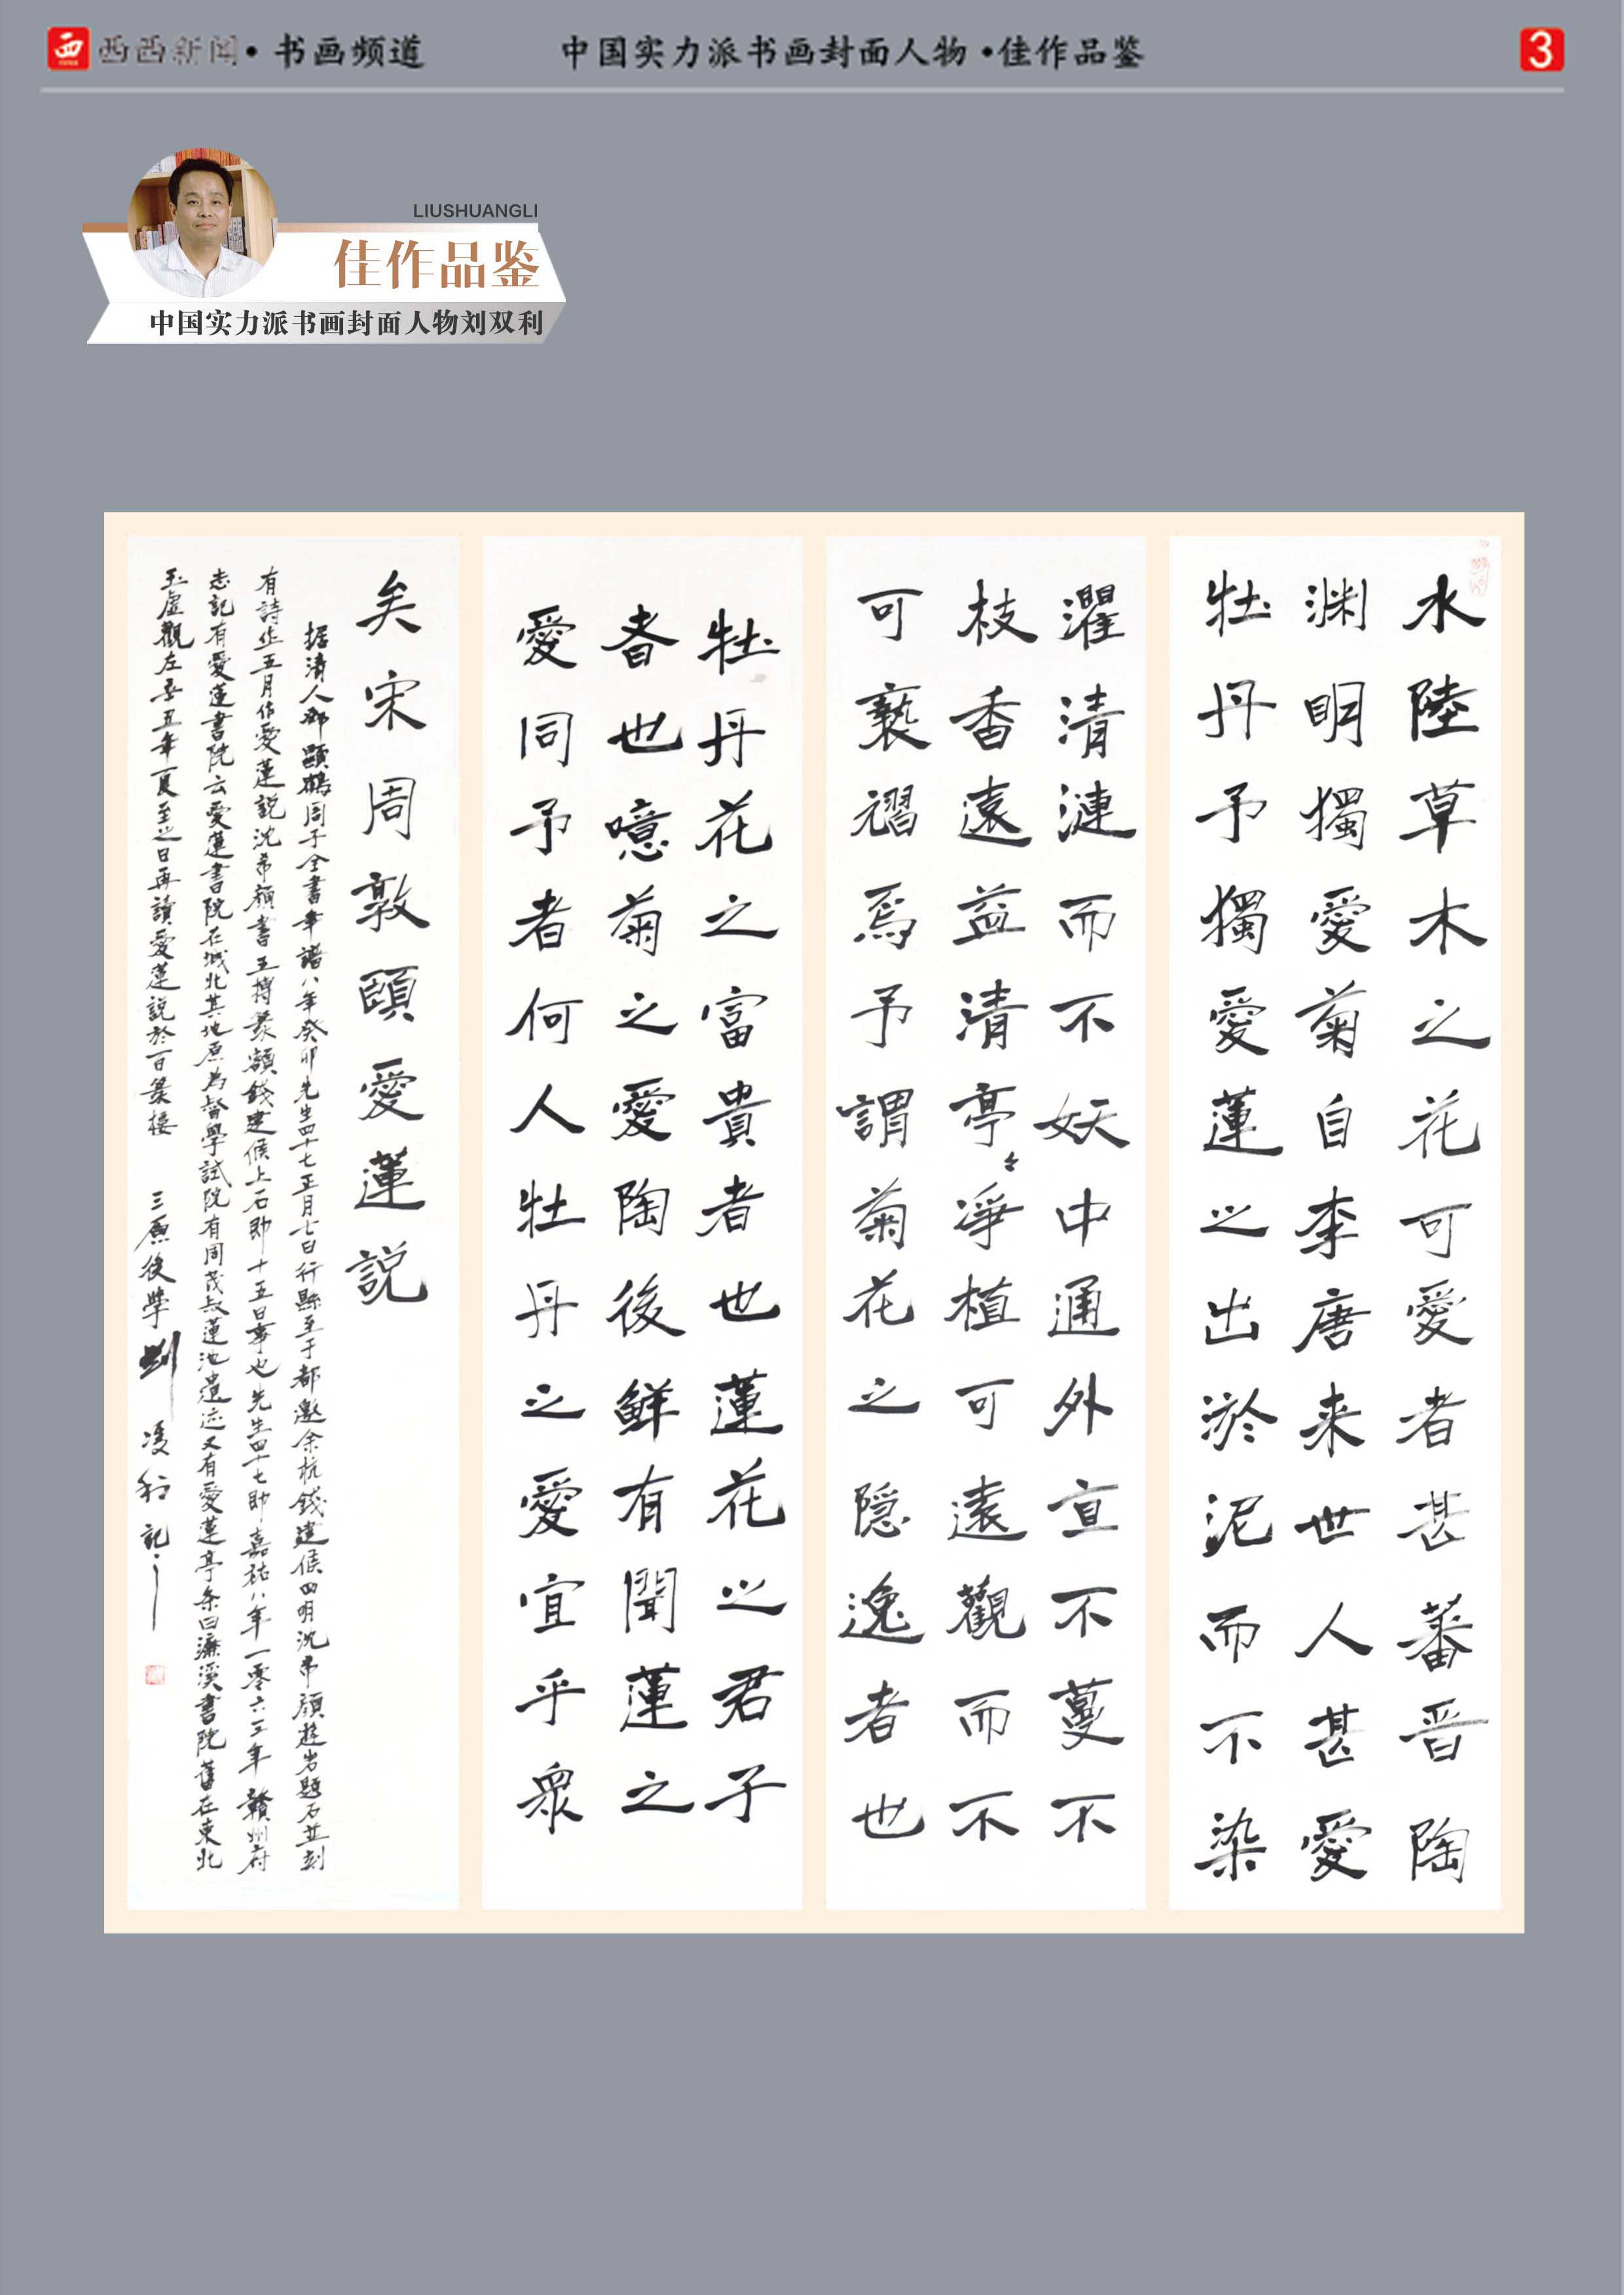 西西新闻·书画频道
中国实力派书画封面人物·佳作品鉴
3
LIUSHUANGLI
佳作品鉴
中国实力派书画封面人物刘双利
水陸草木之花可愛者甚蕃晋陶
渊明獨愛菊自李唐来世人甚愛
牡丹予獨愛蓮之出淤泥而不染
濯清漣而不妖中通外直不蔓不
枝香遠益清亭〻淨植可遠觀而不
可褻褶焉予謂菊花之隐逸者也
牡丹花之富貴者也蓮花之君子
者也噫菊之愛陶後鮮有聞蓮之
愛同予者何人牡丹之愛宜乎眾
矣宋周敦頤愛蓮説
据清人鄧顯鶴周子全書年譜八年癸卯先生四十七正月七日行縣至于都邀余杭錢建侯四明沈希顔遊岩題石並刻
有詩作五月作愛蓮説沈希顔書王摶篆額錢建候上石即十五日事也先生四十七即嘉祐八年一零六三年贛州府
志記有愛蓮書院云愛蓮書院在城北其地原為督學試院有周茂叔蓮池遺迹又有愛蓮亭条曰濂溪書院舊在東北
玉虚觀左辛丑年夏至之日再讀愛蓮説於百篆楼 三原後學劉 記